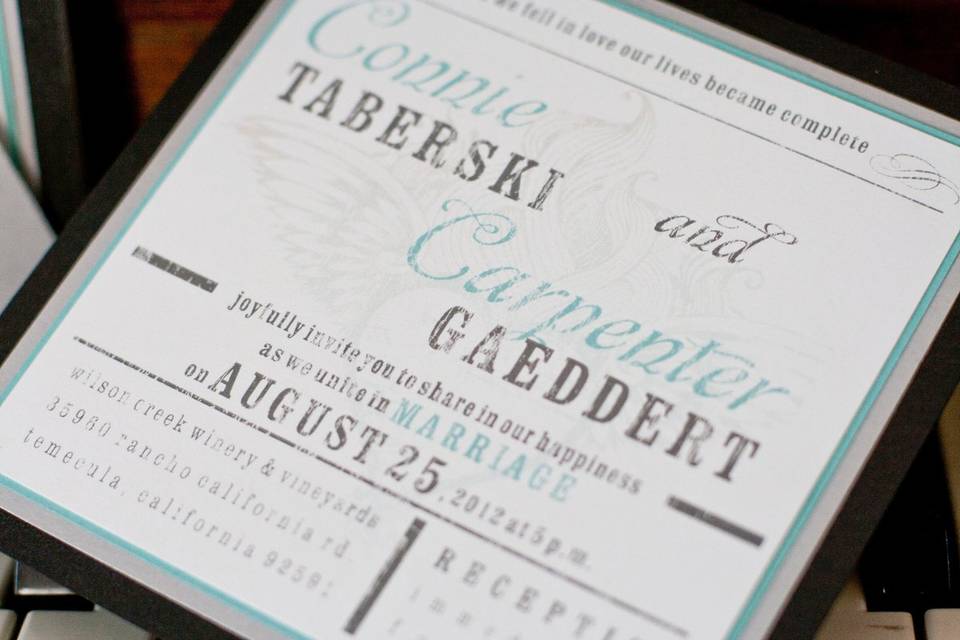 we fell in love our lives became complete
Connie
TABERSKI
and
Carpenter
GAEDDERT
joyfully invite you to share in our happiness
as we unite in MARRIAGE
on AUGUST 25, 2012 at 5 p.m.
wilson creek winery & vineyards
35960 rancho california rd.
temecula, california 92591
RECEPTI